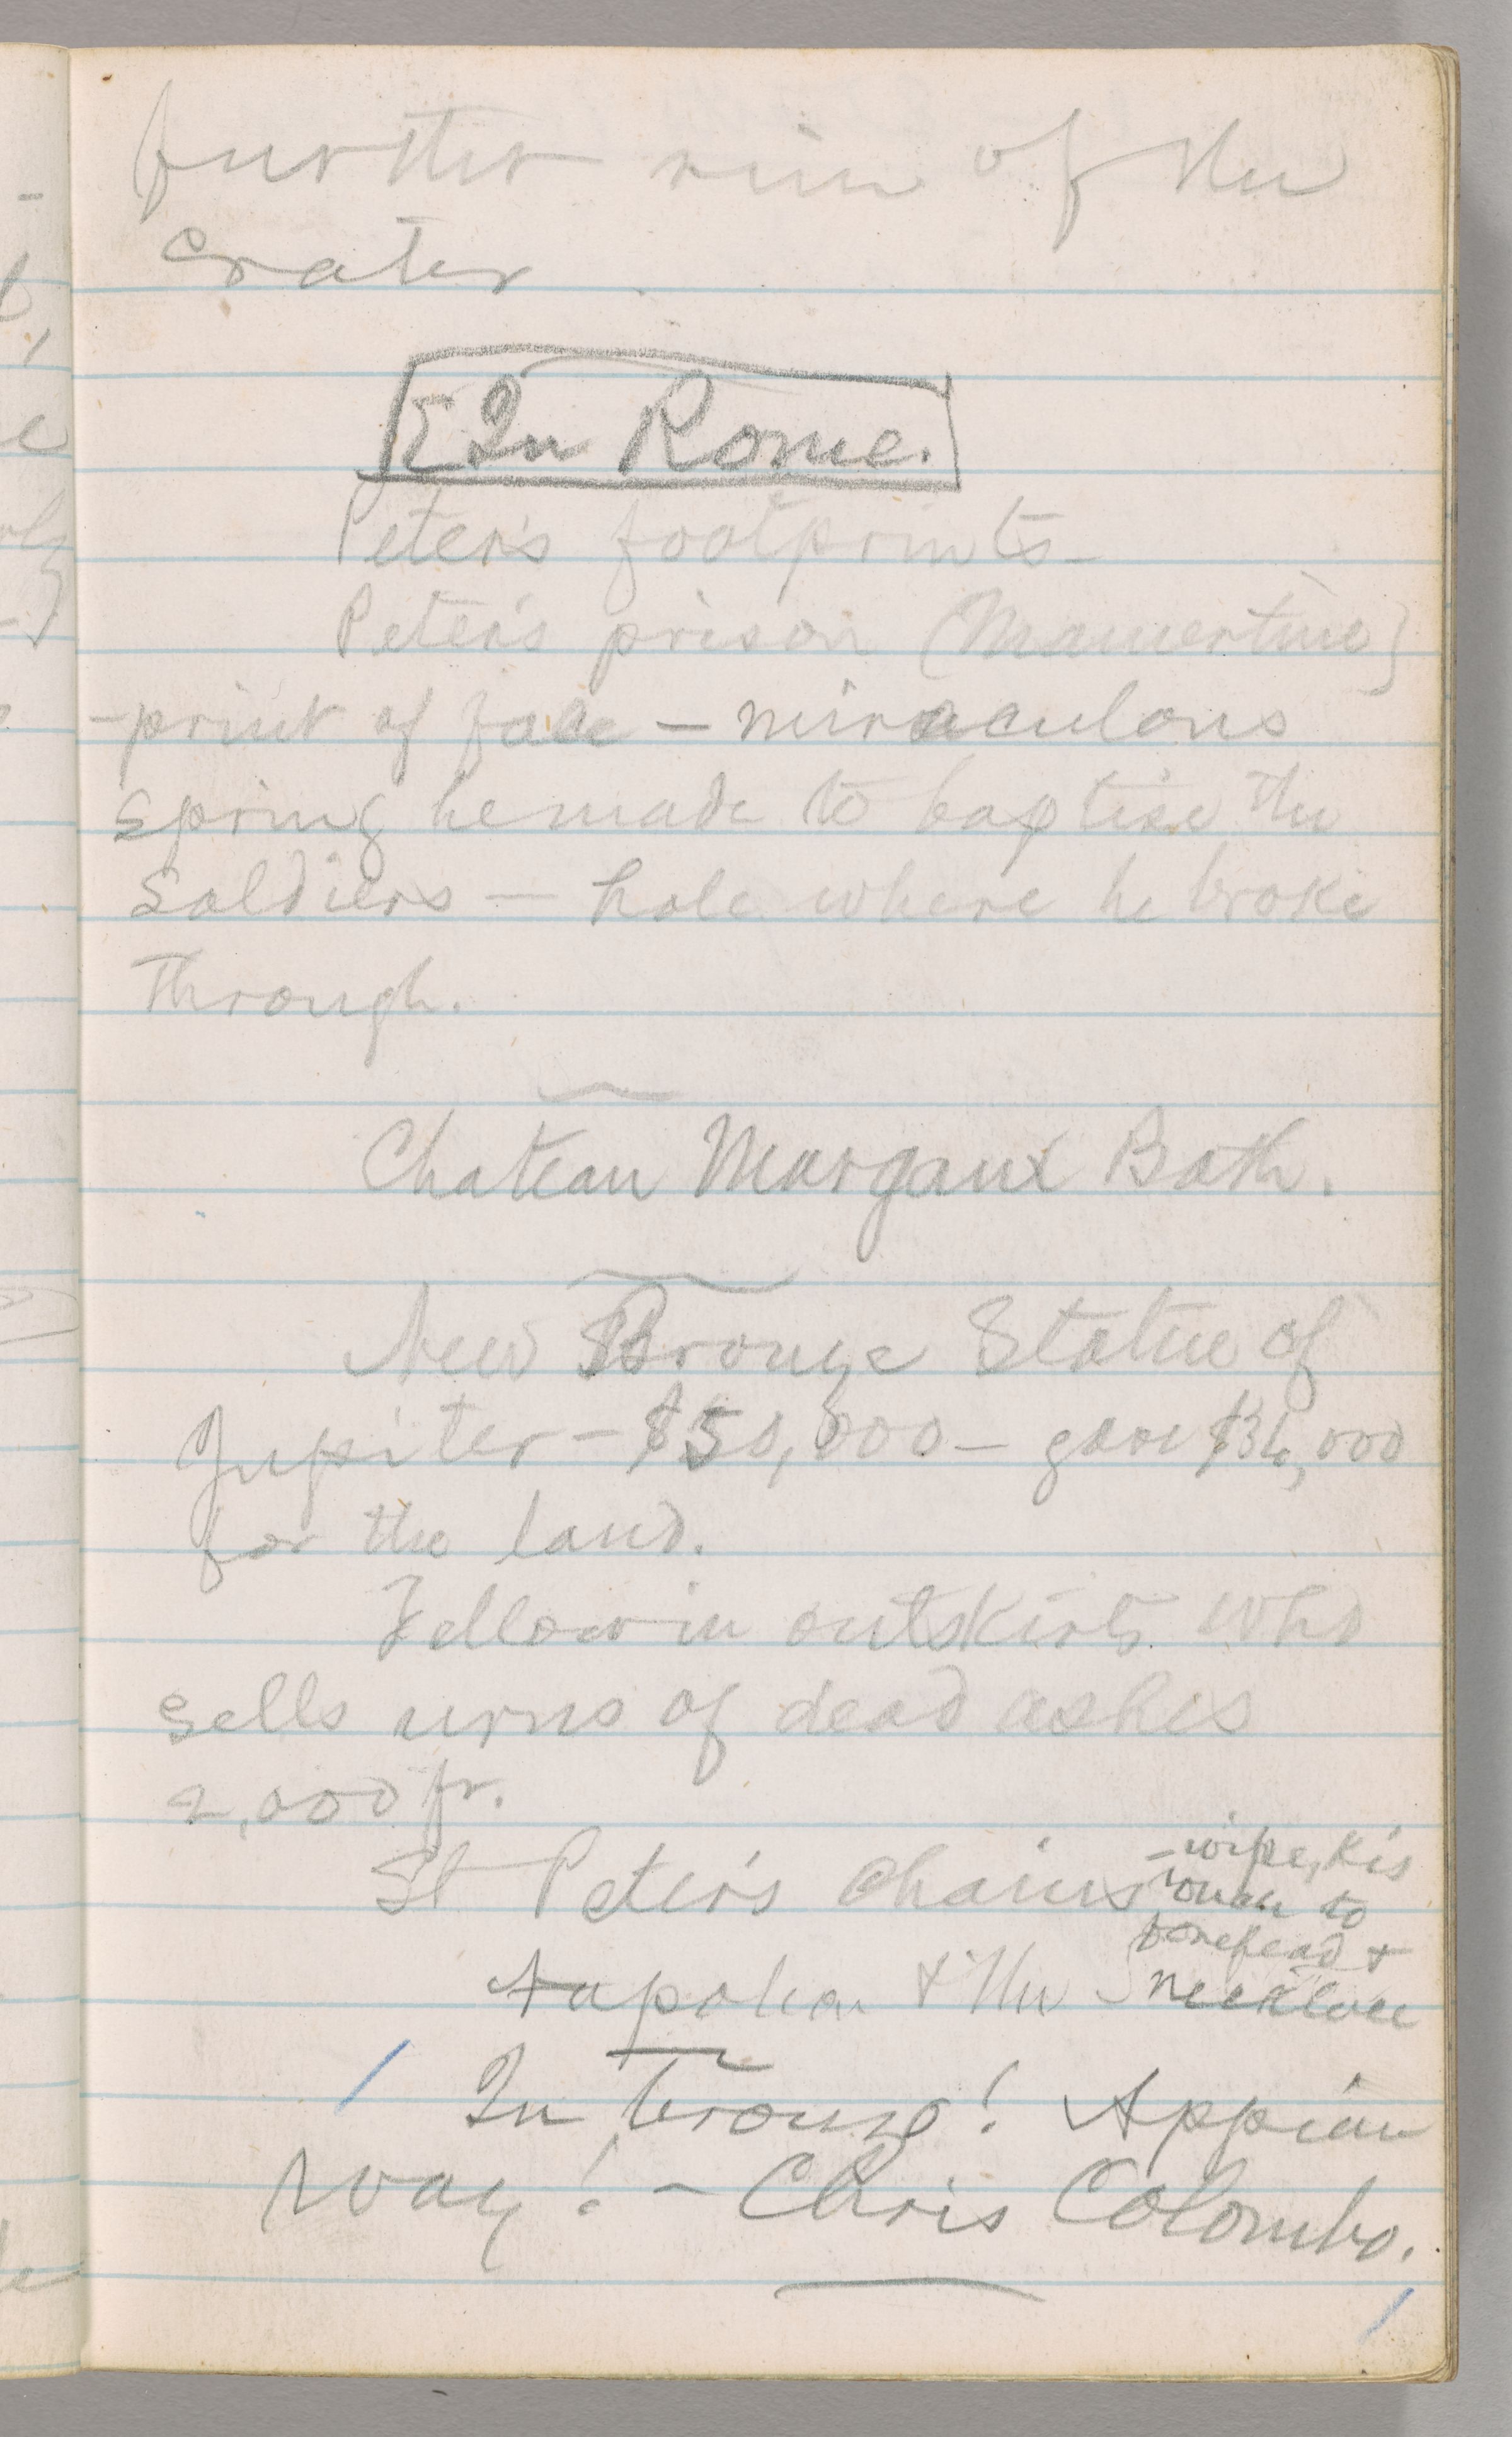 further rim of the
crater.
[In Rome.
Peter's footprints—
Peter's prison (Mamertine)
—print of face — miraculous
spring he made to baptise the
soldiers — hole where he broke
through.
Chateau Margaux Bath.
New Bronze Statue of
Jupiter—$50,000— gave $36,000
for the land.
Fellow in outskirts who
sells urns of dead ashes
2,000 fr.
St Peter's chains
—wipe, kis
touch to
forehead &
necklace
Napoleon & the
In bronze! Appian
way! — Chris Colombo.